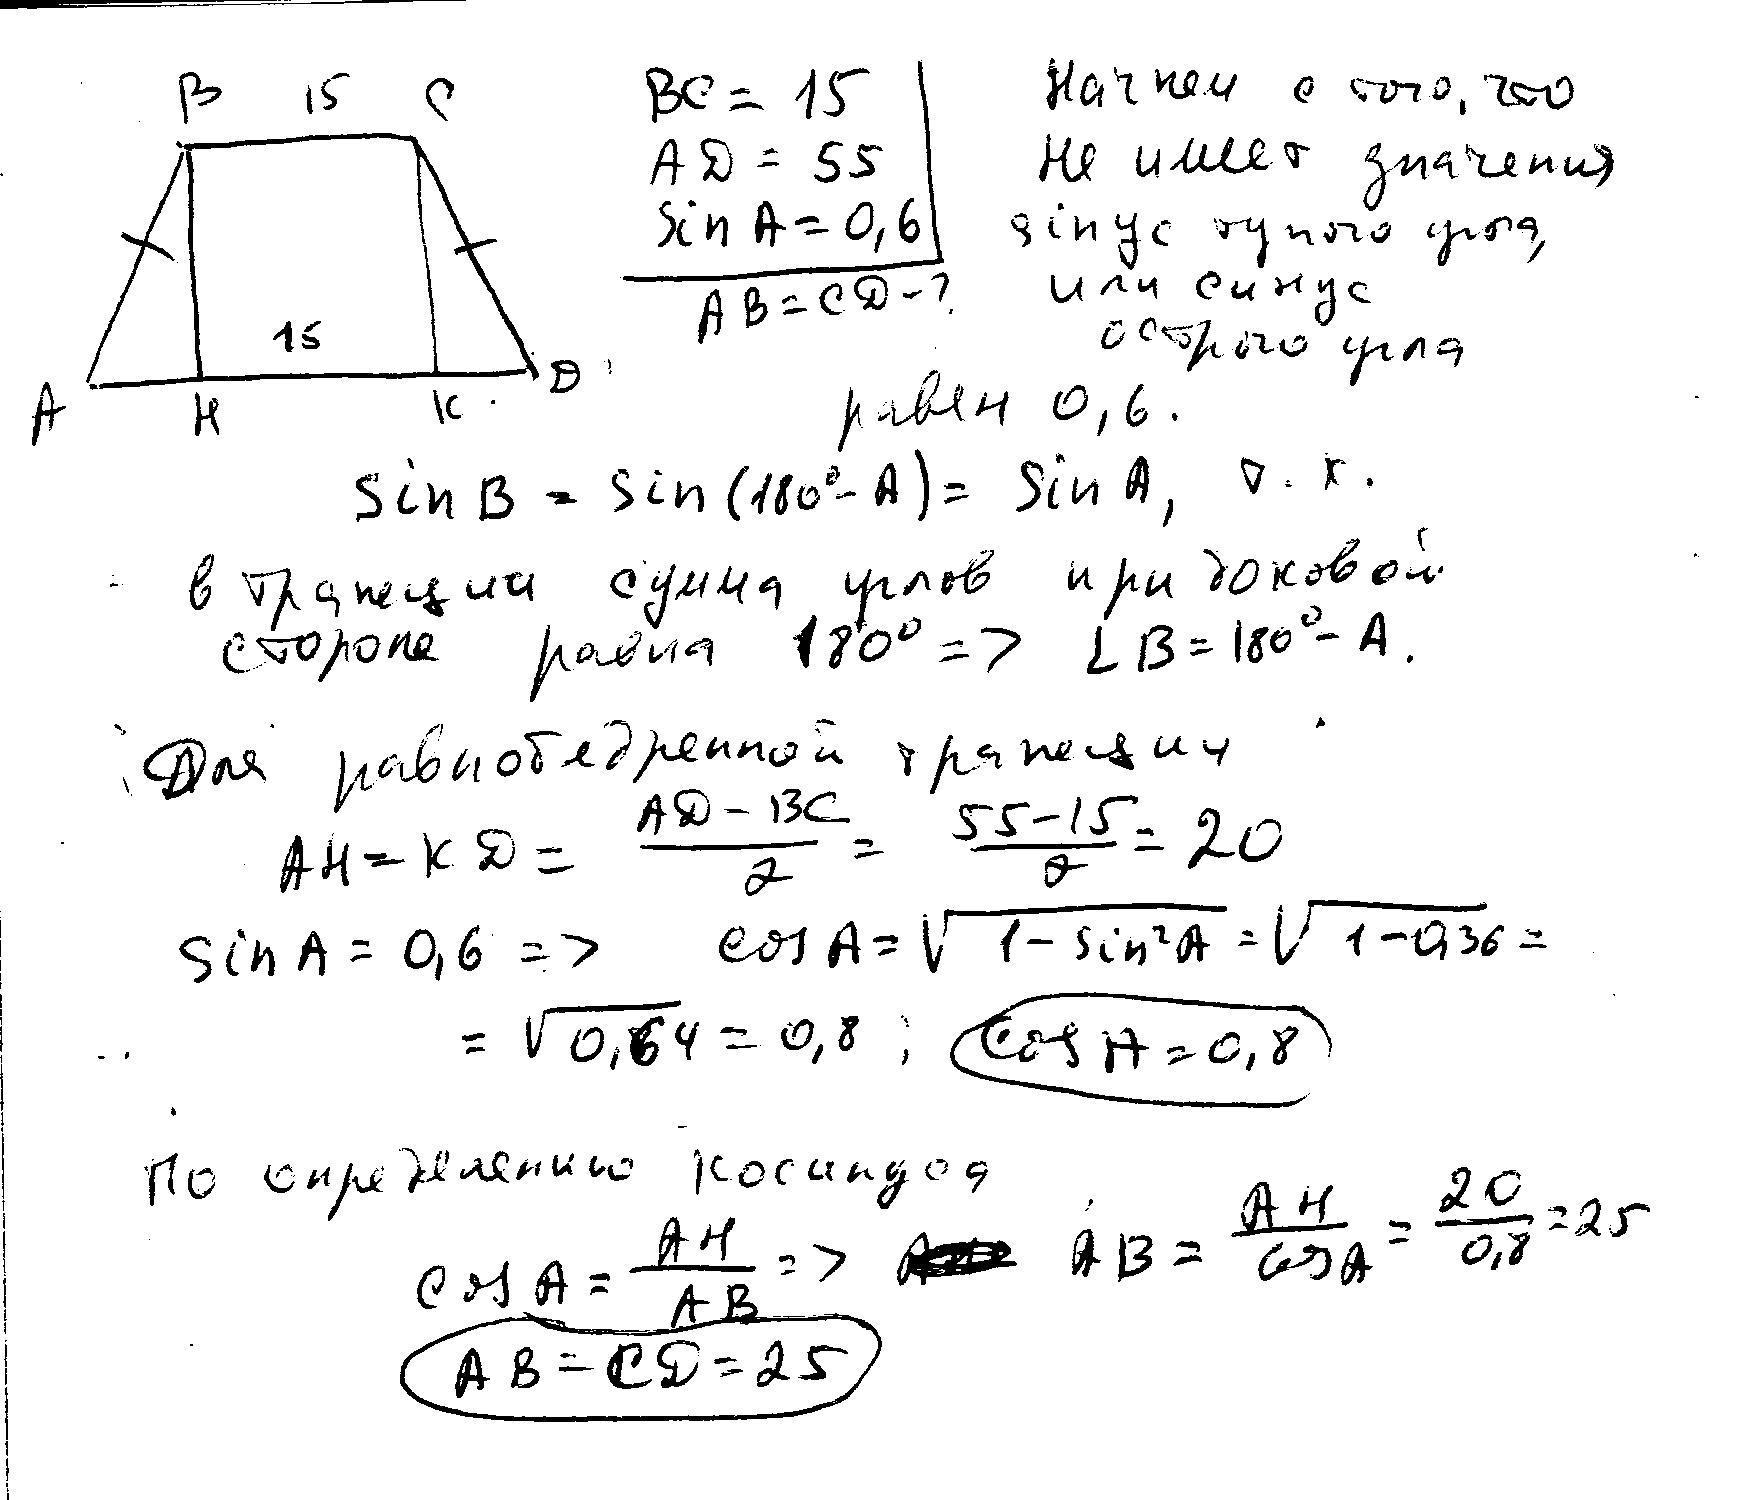 B 15 C
BC = 15
AD = 55
sin A = 0,6
AB = CD - ?
15
A H K D
Начнем с того, что
не имеет значения
sinус тупого угла,
или синус
острого угла
равен 0,6.
sin B = sin(180° - A) = sin A, т.к.
в трапеции сумма углов при боковой
стороне равна 180° => ∠B = 180° - A.
Для равнобедренной трапеции
AH = KD = (AD - BC)/2 = (55 - 15)/2 = 20
sin A = 0,6 => cos A = √(1 - sin²A) = √(1 - 0,36) =
= √0,64 = 0,8 ; cos A = 0,8
По определению косинуса
cos A = AH/AB => AB = AH/cos A = 20/0,8 = 25
AB = CD = 25